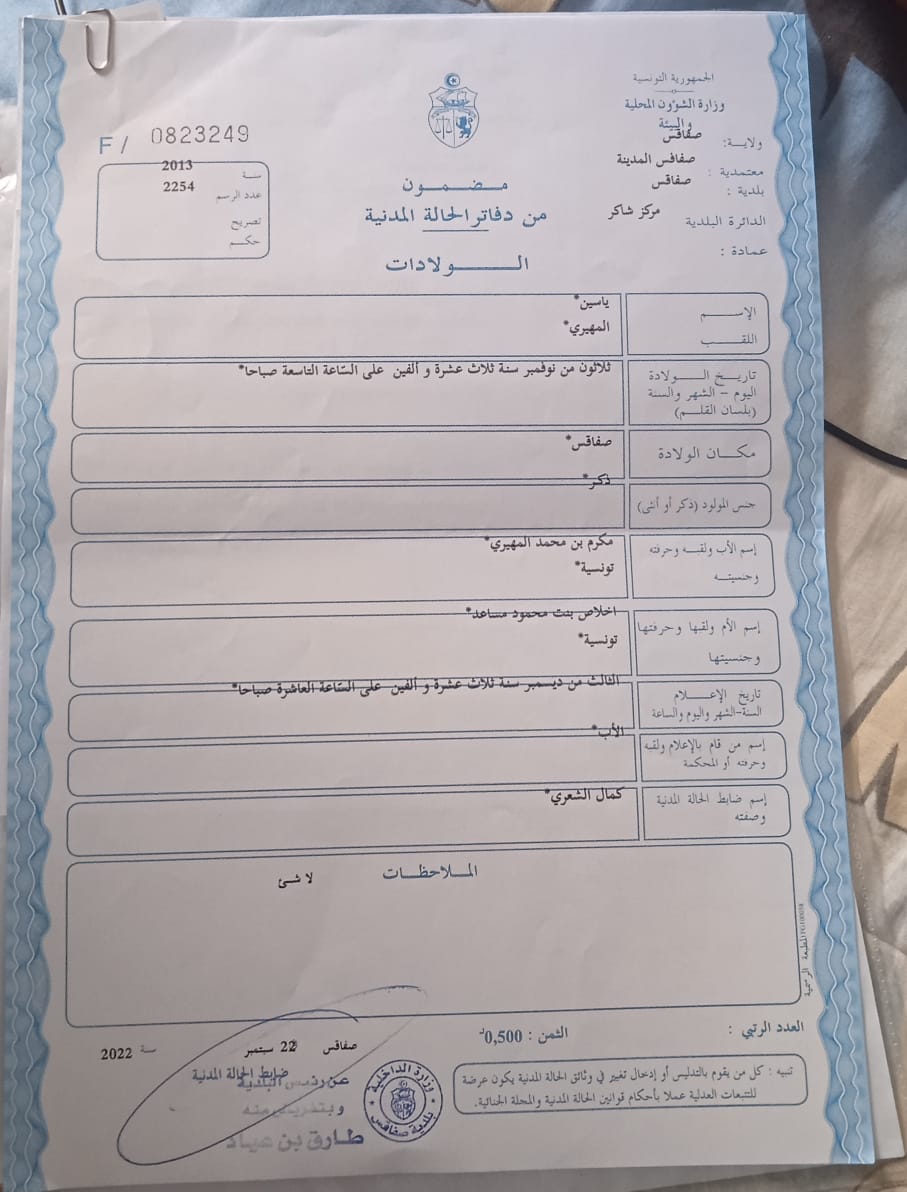 الجمهورية التونسية
وزارة الشؤون المحلية
والبيئة
ولايــة: صفاقس
معتمدية : صفاقس المدينة
بلدية : صفاقس
الدائرة البلدية مركز شاكر
عمادة :
F / 0823249
سنة 2013
عدد الرسم 2254
تصريح
حكم
مضمون
من دفاتر الحالة المدنية
الولادات
الإسم ياسين*
اللقب المهيري*
تاريخ الولادة ثلاثون من نوفمبر سنة ثلاث عشرة و ألفين على السّاعة التاسعة صباحا*
اليوم - الشهر والسنة
(بلسان القلم)
مكان الولادة صفاقس*
جنس المولود (ذكر أو أنثى) ذكر*
إسم الأب ولقبه وحرفته مكرم بن محمد المهيري*
وجنسيته تونسية*
إسم الأم ولقبها وحرفتها اخلاص بنت محمود مساعد*
وجنسيتها تونسية*
تاريخ الإعلام الثالث من ديسمبر سنة ثلاث عشرة و ألفين على السّاعة العاشرة صباحا*
السنة-الشهر واليوم والساعة
إسم من قام بالإعلام ولقبه الأب*
وحرفته أو المحكمة
إسم ضابط الحالة المدنية كمال الشعري*
وصفته
الملاحظات
لا شئ
المطبعة الرسمية
العدد الرتبي :
الثمن : 0,500د
صفاقس 22 سبتمبر سنة 2022
ضابط الحالة المدنية
عن رئيس البلدية
وبتفويض منه
طارق بن عياد
وزارة الداخلية
بلدية صفاقس
تنبيه : كل من يقوم بالتدليس أو إدخال تغيير في وثائق الحالة المدنية يكون عرضة
للتتبعات العدلية عملا بأحكام قوانين الحالة المدنية والمجلة الجنائية.